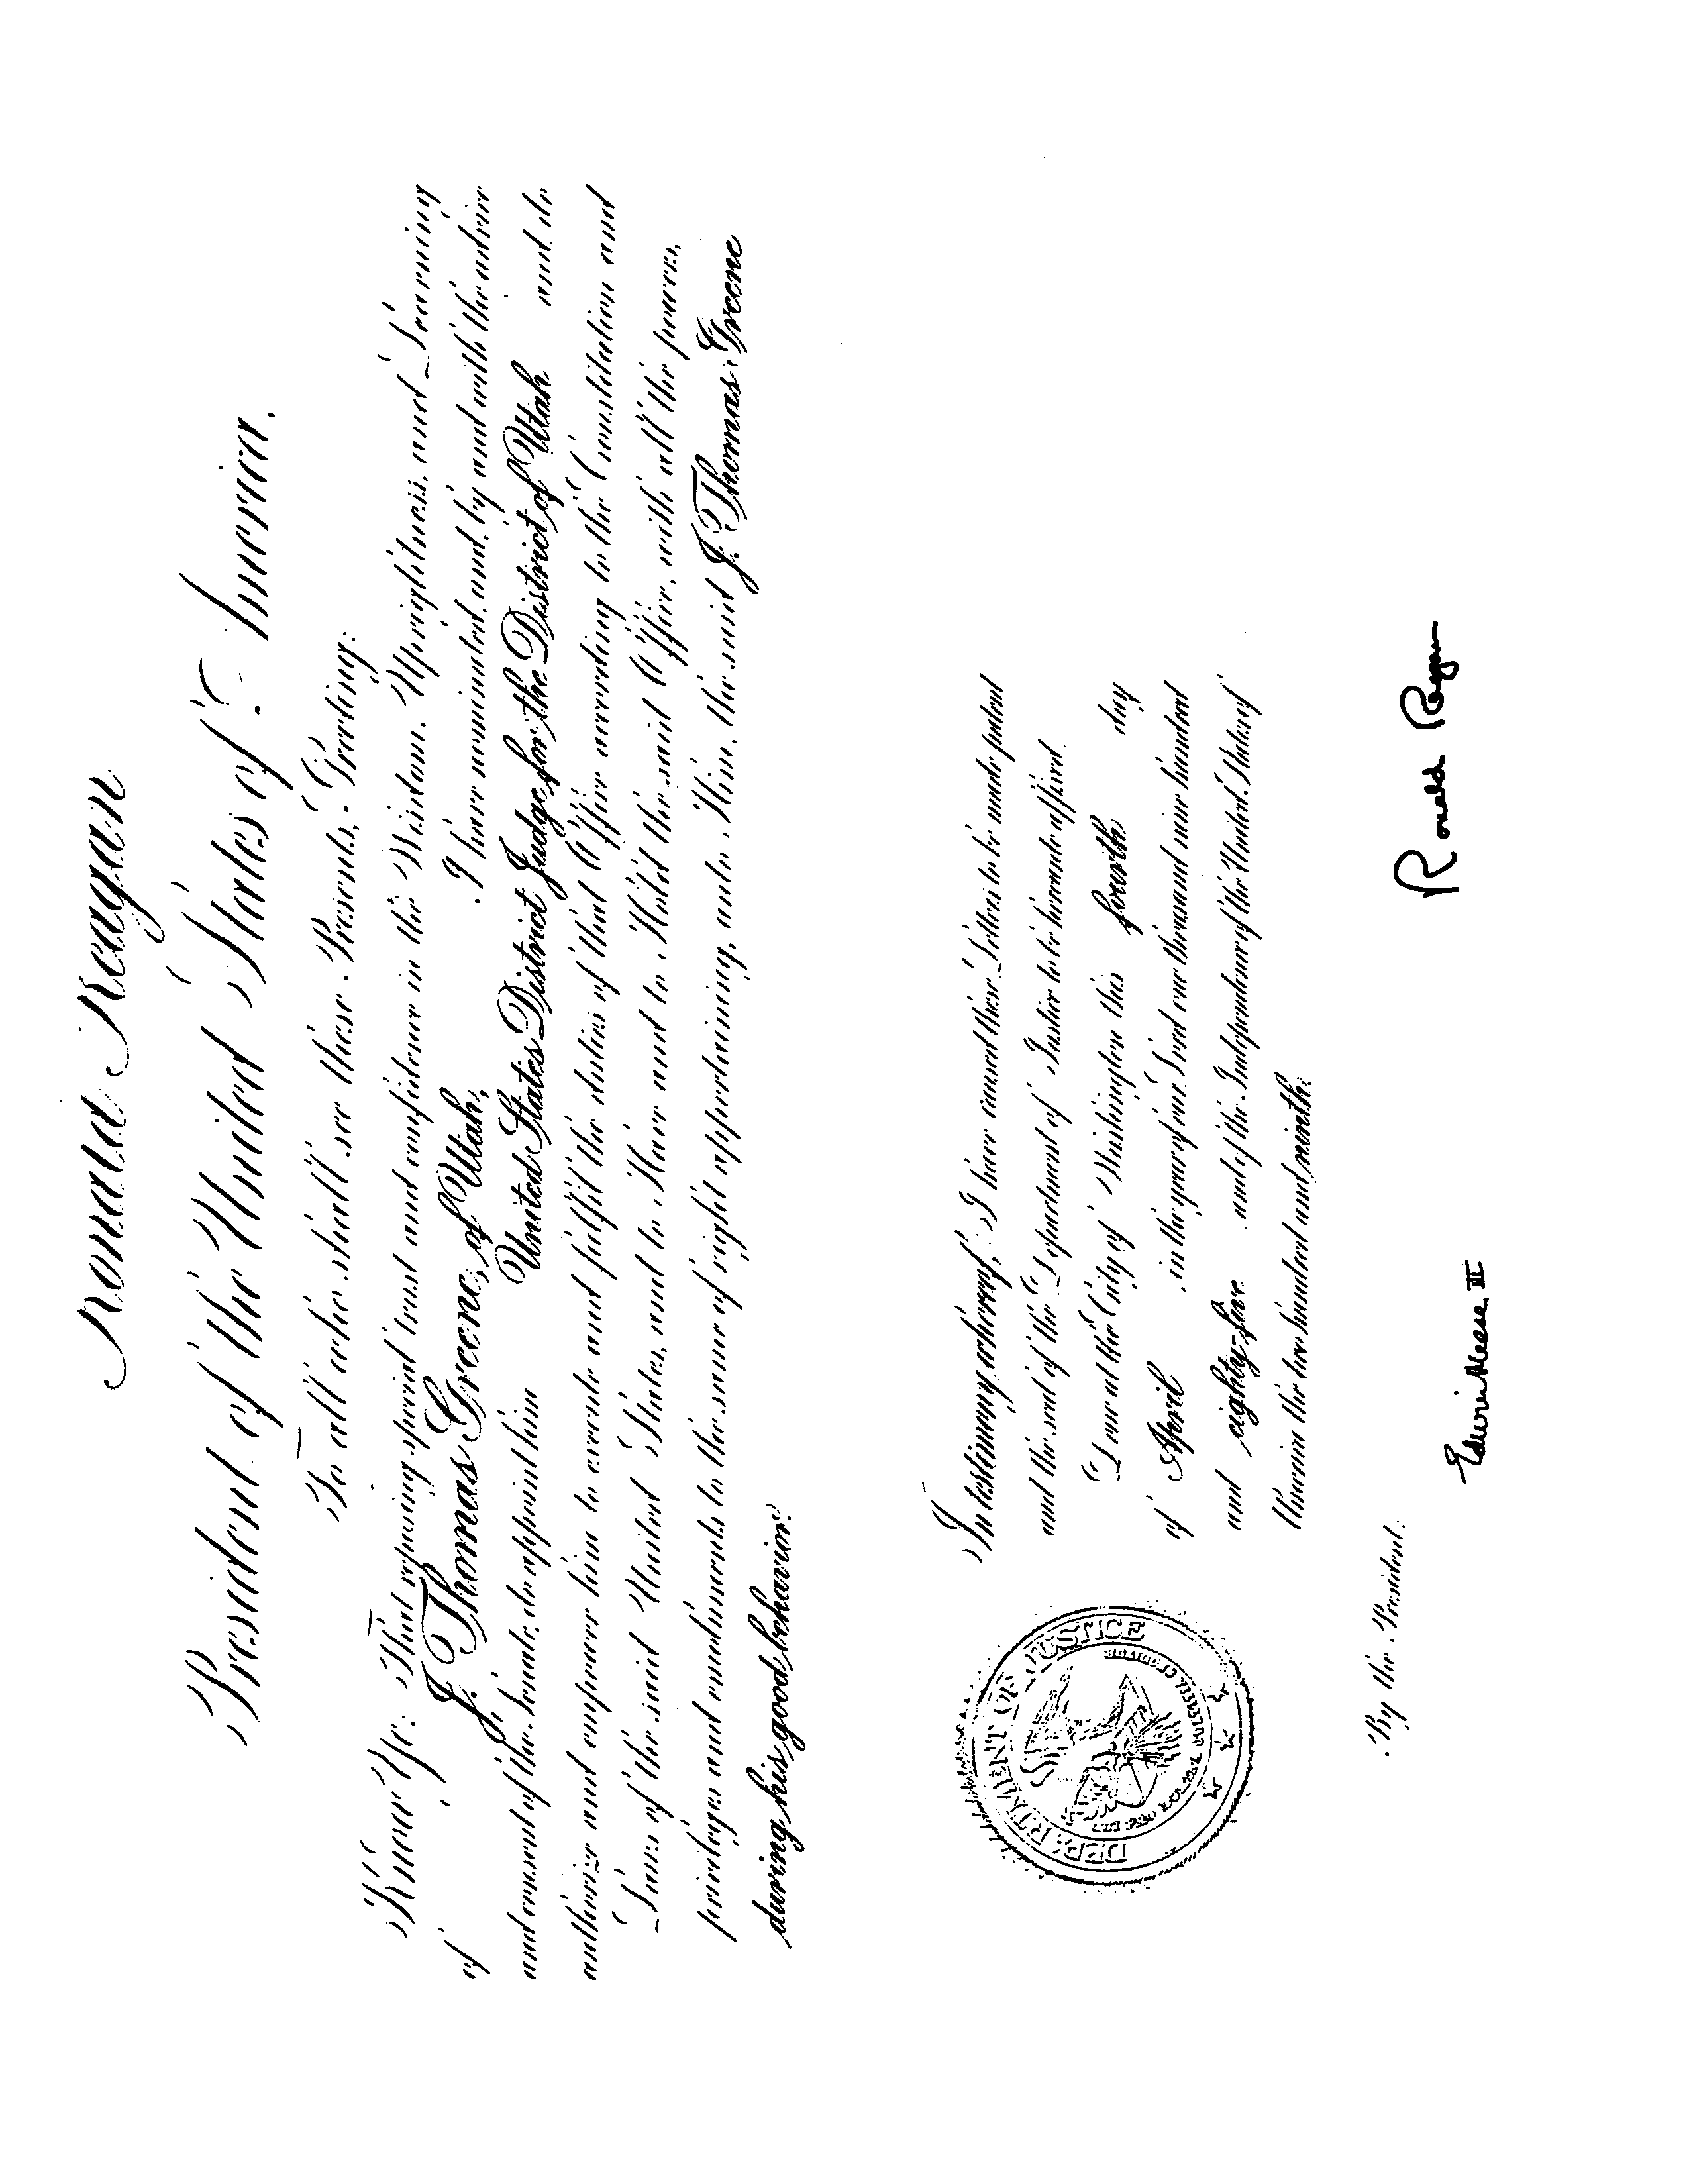 Ronald Reagan
President of the United States of America.
To all who shall see these Presents, Greeting:
Know Ye: That reposing special trust and confidence in the Wisdom, Uprightness, and Learning
of J. Thomas Greene, of Utah, I have nominated, and, by and with the advice
and consent of the Senate, do appoint him United States District Judge for the District of Utah and do
authorize and empower him to execute and fulfil the duties of that Office according to the Constitution and
Laws of the said United States, and to Have and to Hold the said Office, with all the powers,
privileges and emoluments to the same of right appertaining, unto Him, the said J. Thomas Greene
during his good behavior.
In testimony whereof, I have caused these Letters to be made patent
and the seal of the Department of Justice to be hereunto affixed.
Done at the City of Washington this fourth day
of April in the year of our Lord one thousand nine hundred
and eighty-five and of the Independence of the United States of
America the two hundred and ninth.
DEPARTMENT OF JUSTICE
QUI PRO DOMINA JUSTITIA SEQUITUR
By the President:
Ronald Reagan
Edwin Meese III